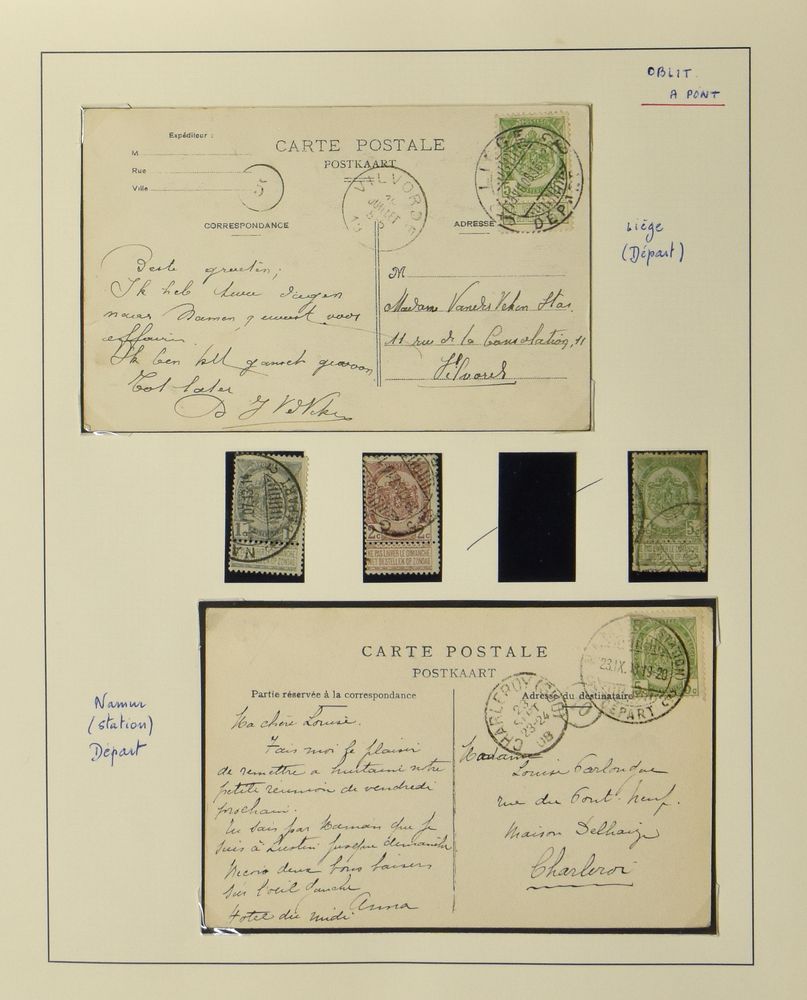 OBLIT.
A PONT
Expéditeur :
M
Rue
Ville
CARTE POSTALE
POSTKAART
5
VILVORDE
JUILLET
CORRESPONDANCE
ADRESSE
LIEGE
DÉPART
5
Liège
(Départ)
Beste groeten,
Ik heb twee dagen
naar Namen geweest voor
affairen
Ik ben gansch gewoon
Tot later
M
Madame Vander Veken
11 rue de la Consolation, 11
Vilvorde
1c
2c
NE PAS LIVRER LE DIMANCHE
NIET BESTELLEN OP ZONDAG
5c
CARTE POSTALE
POSTKAART
Partie réservée à la correspondance
Adresse du destinataire
(STATION)
23.IX. 19-20
DÉPART
CHARLEROY (SUD)
23
SEPT
23-24
08
Namur
(station)
Départ
Ma chère Louise.
Fais moi le plaisir
de remettre a huitaine notre
petite réunion de vendredi
prochain.
Tu sais par Maman que je
suis à Lustin jusque dimanche
Reçois deux bons baisers
sur l'oeil gauche
Anna
Hotel du midi
Madame
Louise
rue du Pont-Neuf.
Maison Delhaize
Charleroi